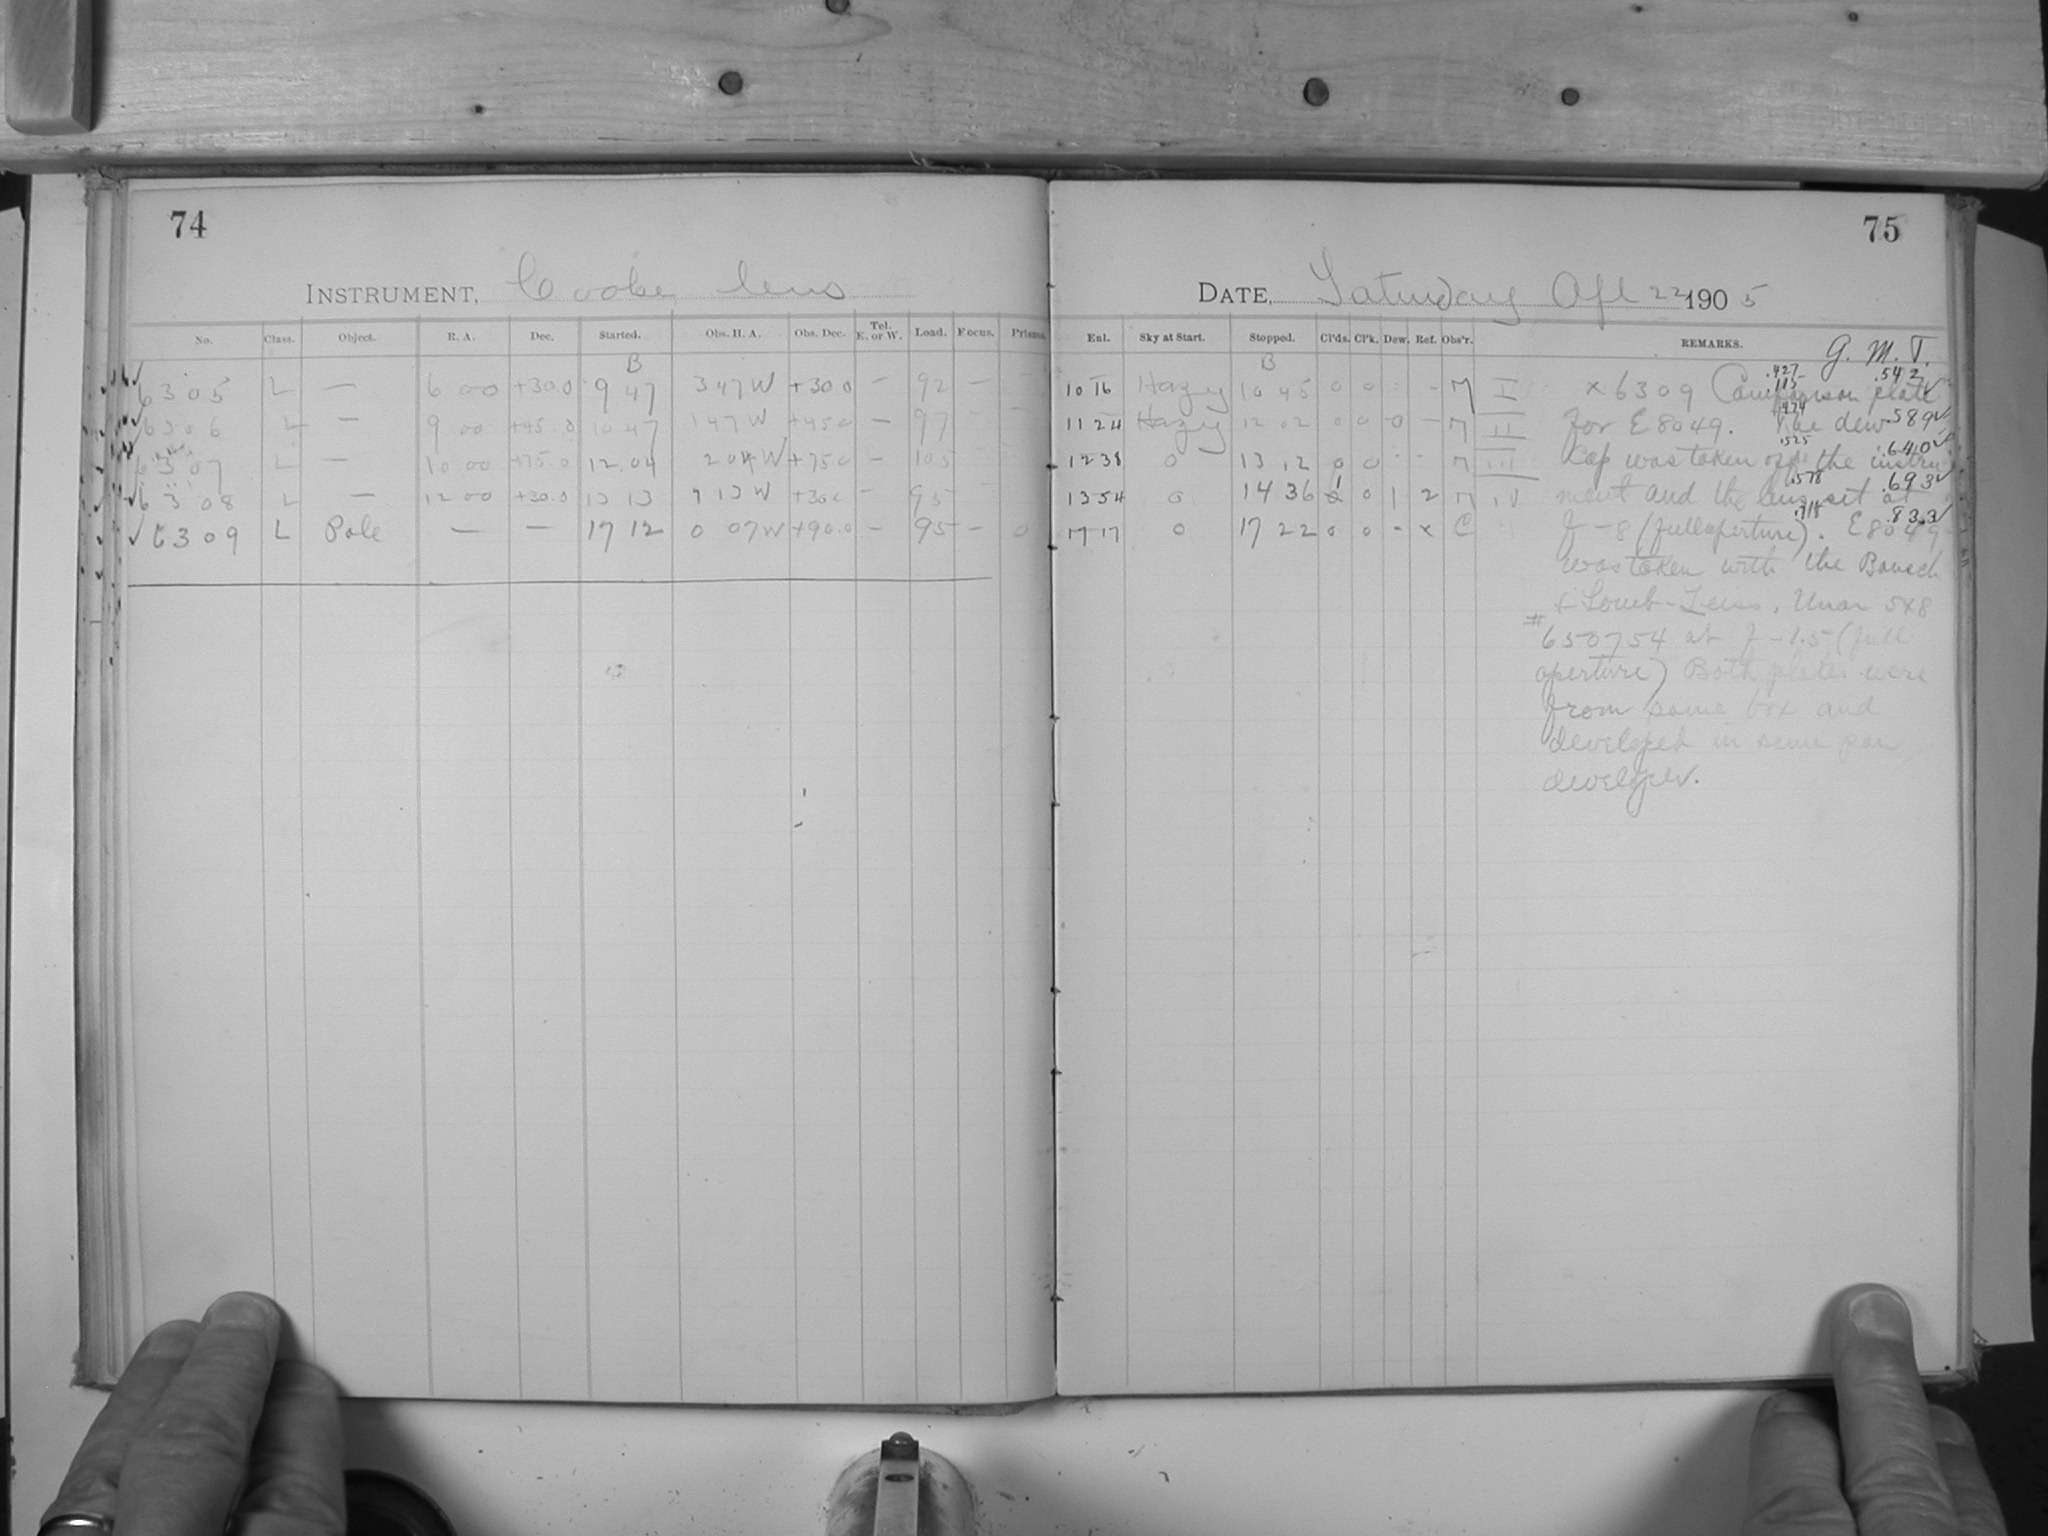 74
75
INSTRUMENT, Cooke lens
DATE, Saturday Apl 22 1905
No. Class. Object. R. A. Dec. Started. Obs. H. A. Obs. Dec. Tel. E. or W. Load. Focus. Prisms. Enl. Sky at Start. Stopped. Cl'ds. Cl'k. Dew. Ref. Obs'r. REMARKS. G. M. T.
B B
6305 L — 6 00 +30.0 9 47 3 47 W +30 0 — 92 — 10 16 Hazy 10 45 0 0 - M I × 6309 Comparison plate .427 .115 .542 ✓
6306 L — 9 00 +45.0 10 47 1 47 W +45 0 — 97 11 24 Hazy 12 02 0 0 0 — M II for E8049. The dew .474 .589 ✓
6307 L — 10 00 +75.0 12.04 2 04 W +75 0 — 105 12 38 0 13 12 0 0 M III cap was taken off the instru- .525 .640 ✓
6308 L — 12 00 +30.0 13 13 1 13 W +30 0 — 95 13 54 0 14 36 0 1 2 M IV ment and the lens set at .578 .693 ✓
6309 L Pole — — 17 12 0 07 W +90.0 — 95 — 0 17 17 0 17 22 0 0 - × C f-8 (full aperture). E8049 .718 .833 ✓
was taken with the Bausch
& Lomb-Zeiss, Unar 5×8
# 650754 at f- (full
aperture) Both plates were
from same box and
developed in same pan
developer.